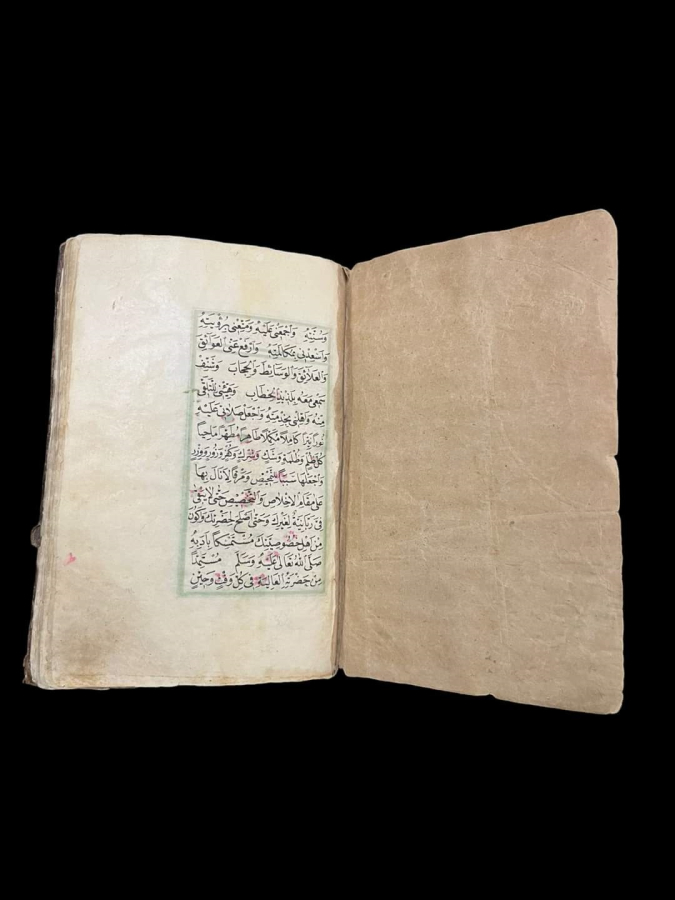 وَسُنَّتِهِ وَاجْمَعْنِي عَلَيْهِ وَمَتِّعْنِي بِرُؤْيَتِهِ
وَاَسْعِدْنِي بِمُكَالَمَتِهِ وَارْفَعْ عَنِّي الْعَوَائِقَ
وَالْعَلَائِقَ وَالْوَسَايِطَ وَالْحِجَابَ وَشَنِّفْ
سَمْعِي مَعَهُ بِلَذِيذِ الْخِطَابِ وَهَيِّئْنِي لِلتَّلَقِّي
مِنْهُ وَاَهِّلْنِي لِخِدْمَتِهِ وَاجْعَلْ صَلَاتِي عَلَيْهِ
نُورًا نَيِّرًا كَامِلًا مُكَمَّلًا طَاهِرًا مُطَهِّرًا مَاحِيًا
كُلَّ ظُلْمٍ وَظُلْمَةٍ وَشَكٍّ وَشِرْكٍ وَكُفْرٍ وَزُورٍ وَوِزْرٍ
وَاجْعَلْهَا سَبَبًا لِلتَّمْحِيصِ وَمَرْقًا لِاَنَالَ بِهَا
عَلَى مَقَامِ الْاِخْلَاصِ وَالتَّخْصِيصِ حَتَّى لَا يَبْقَى
فِيَّ رَبَّانِيَّةٌ لِغَيْرِكَ وَحَتَّى اَصْلُحَ لِحَضْرَتِكَ وَاَكُونَ
مِنْ اَهْلِ خُصُوصِيَّتِكَ مُسْتَمْسِكًا بِاَدَبِهِ
صَلَّى اللهُ تَعَالَى عَلَيْهِ وَسَلَّمَ مُسْتَمِدًّا
مِنْ حَضْرَتِهِ الْعَالِيَةِ فِي كُلِّ وَقْتٍ وَحِينٍ